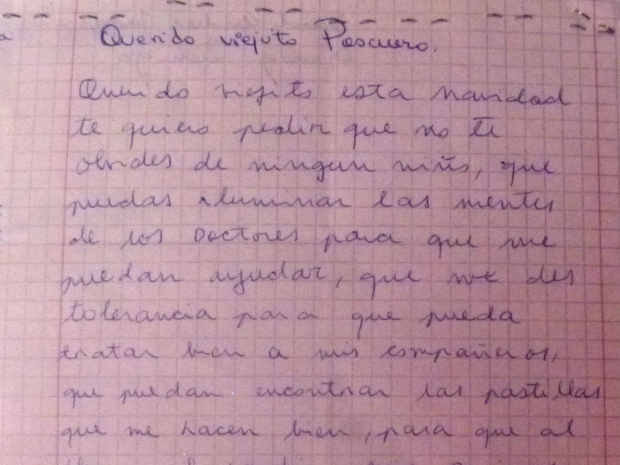 Querido viejito Pascuero.
Querido viejito esta navidad
te quiero pedir que no te
olvides de ningun niño, que
puedas iluminar las mentes
de los Doctores para que me
puedan ayudar, que me des
tolerancia para que pueda
tratar bien a mis compañeros,
que puedan encontrar las pastillas
que me hacen bien, para que al